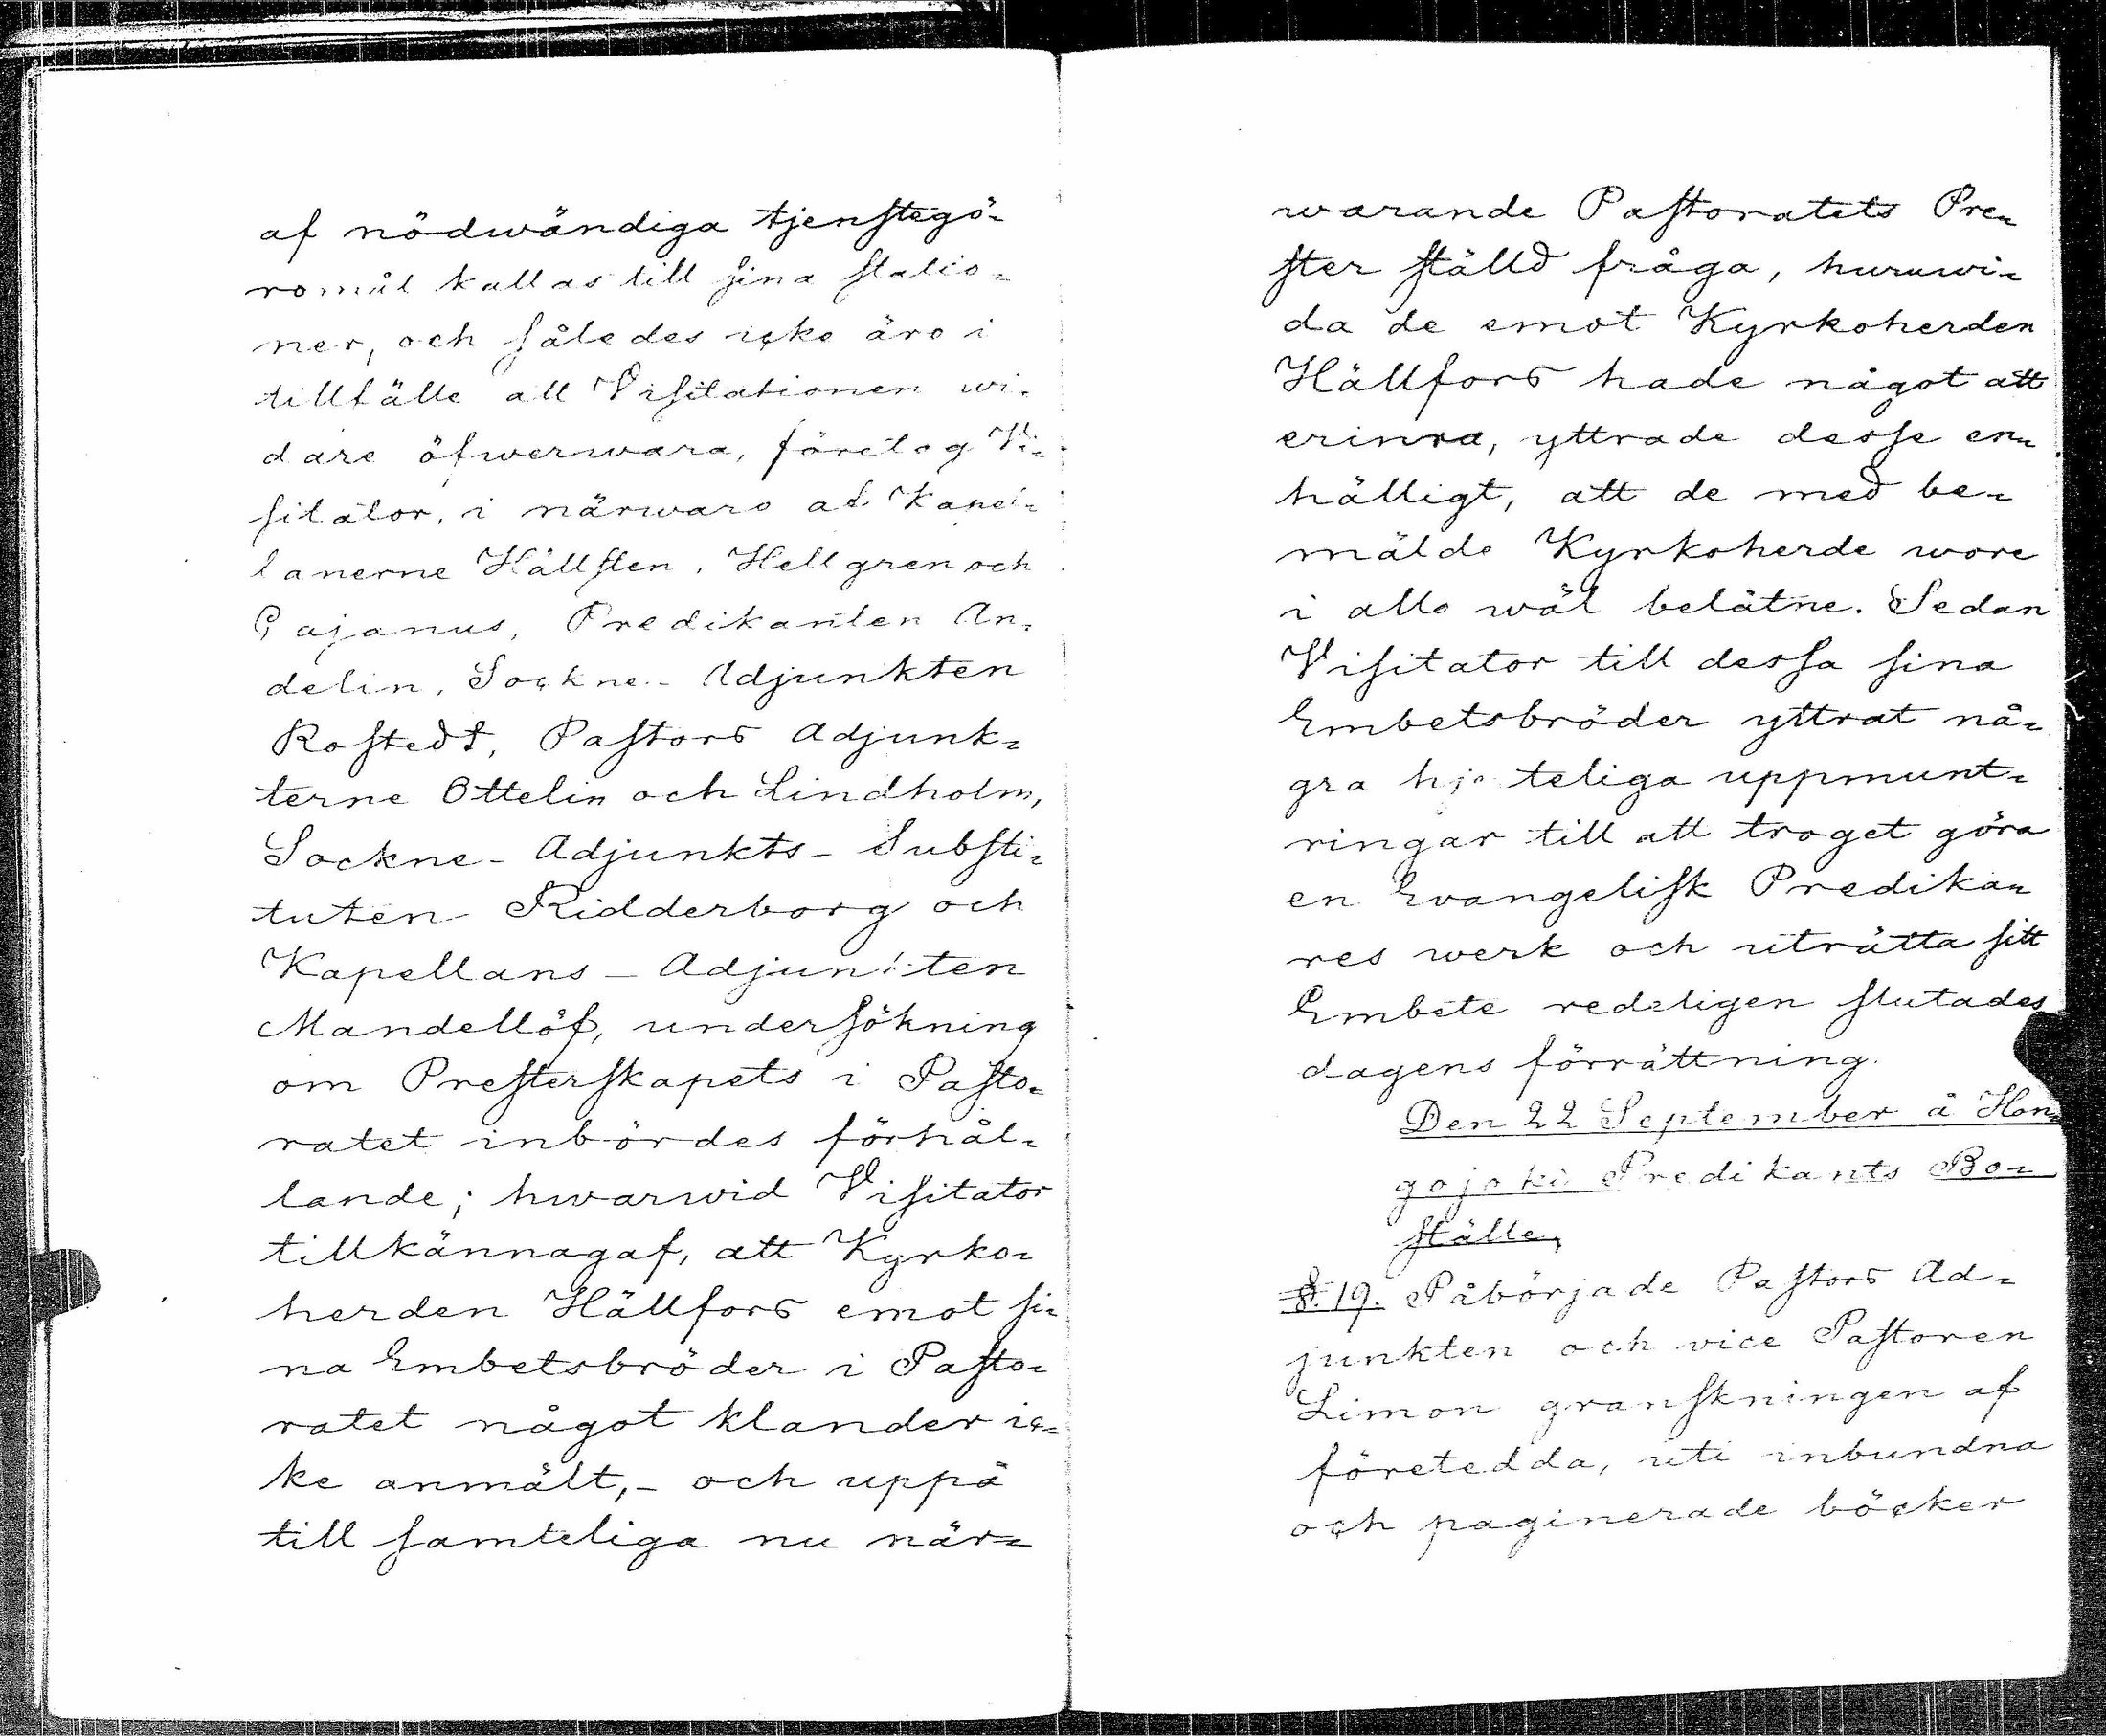 af nödwändiga tjenstegö=
romål kallas till sina statio=
ner, och således icke äro i
tillfälle att Visitationen wi=
dare öfwerwara, företog Vi=
sitator, i närwaro af Kapel=
lanerne Hållsten, Hellgren och
Pajanus, Predikanten An=
delin, Sockne-Adjunkten
Rostedt, Pastors Adjunk=
terne Ottelin och Lindholm,
Sockne-Adjunkts-Substi=
tuten Ridderborg och
Kapellans-Adjunkten
Mandellöf, undersökning
om Presterskapets i Pasto=
ratet inbördes förhål=
lande; hwarwid Visitator
tillkännagaf, att Kyrko=
herden Hällfors emot si=
na Embetsbröder i Pasto=
ratet något klander ic=
ke anmält,- och uppå
till samteliga nu när=
warande Pastoratets Pre=
ster ställd fråga, huruwi=
da de emot Kyrkoherden
Hällfors hade något att
erinra, yttrade desse en=
hälligt, att de med be=
mälde Kyrkoherde wore
i allo wäl belåtne. Sedan
Visitator till dessa sina
Embetsbröder yttrat nå=
gra hjerteliga uppmunt=
ringar till att troget göra
en Evangelisk Predika=
res werk och uträtta sitt
Embete redeligen slutades
dagens förrättning.
Den 22 September å Hon=
gojoki Predikants Bo=
ställe,
§. 19. Påbörjade Pastors Ad=
junkten och vice Pastoren
Limon granskningen af
företedda, uti inbundna
och paginerade böcker